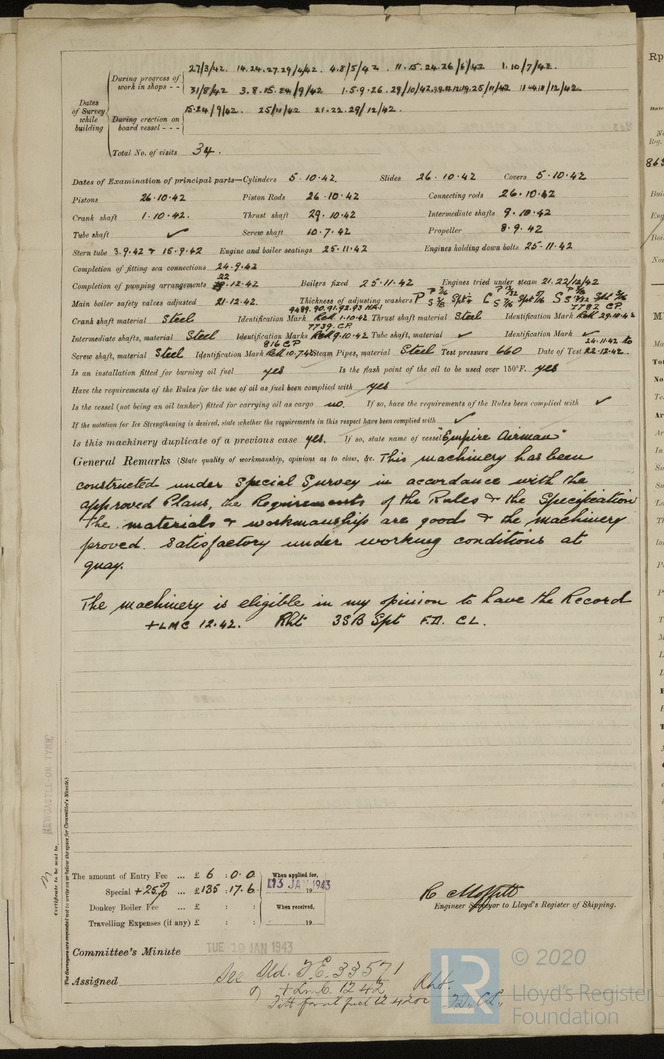 During progress of work in shops - - 27/3/42. 14.24.27.29/4/42. 4.8/5/42. 11.15.24.26/6/42 1.10/7/42.
31/8/42 3.8.15.24/9/42 1.5.9.26.29/10/42
Dates of Survey while building
During erection on board vessel - - - 15.24/9/42. 25/11/42 21.22.29/12/42.
Total No. of visits 34.
Dates of Examination of principal parts—Cylinders 5.10.42. Slides 26.10.42 Covers 5.10.42
Pistons 26.10.42 Piston Rods 26.10.42 Connecting rods 26.10.42
Crank shaft 1.10.42. Thrust shaft 29.10.42 Intermediate shafts 9.10.42
Tube shaft ✓ Screw shaft 10.7.42 Propeller 8.9.42
Stern tube 3.9.42 & 15.9.42 Engine and boiler seatings 25.11.42 Engines holding down bolts 25.11.42
Completion of fitting sea connections 24.9.42
Completion of pumping arrangements 22.12.42 Boilers fixed 25.11.42 Engines tried under steam 21.22/12/42
Main boiler safety valves adjusted 21.12.42. Thickness of adjusting washers
Crank shaft material Steel Identification Mark 1.10.42 Thrust shaft material Steel Identification Mark 29.10.42
Intermediate shafts, material Steel Identification Marks 7739.C.P. 9.10.42 Tube shaft, material ✓ Identification Mark ✓
Screw shaft, material Steel Identification Mark 816 C.P. 10.7.42 Steam Pipes, material Steel Test pressure 660 Date of Test 24.11.42 to 22.12.42.
Is an installation fitted for burning oil fuel yes Is the flash point of the oil to be used over 150°F. yes
Have the requirements of the Rules for the use of oil as fuel been complied with yes
Is the vessel (not being an oil tanker) fitted for carrying oil as cargo no. If so, have the requirements of the Rules been complied with ✓
If the notation for Ice Strengthening is desired, state whether the requirements in this respect have been complied with ✓
Is this machinery duplicate of a previous case yes. If so, state name of vessel "Empire Airman"
General Remarks (State quality of workmanship, opinions as to class, &c. This machinery has been
constructed under Special Survey in accordance with the
approved Plans, the Requirements of the Rules & the Specification
The materials & workmanship are good & the machinery
proved satisfactory under working conditions at
quay.
The machinery is eligible in my opinion to have the Record
+LMC 12.42. Rht 3SB Spt F.D. CL.
NEWCASTLE-ON-TYNE
Certificate to be sent to
The amount of Entry Fee ... £ 6 : 0 . 0
Special +25% ... £ 135 : 17 . 6
Donkey Boiler Fee ... £ : :
Travelling Expenses (if any) £ : :
When applied for,
13 JAN 1943
When received,
19
R. Moffitt
Engineer Surveyor to Lloyd's Register of Shipping.
Committee's Minute TUE 19 JAN 1943
Assigned See Dld. F.E. 33571
+ Lmc 12 42 Rht.
© 2020
LR
Lloyd's Register
Foundation